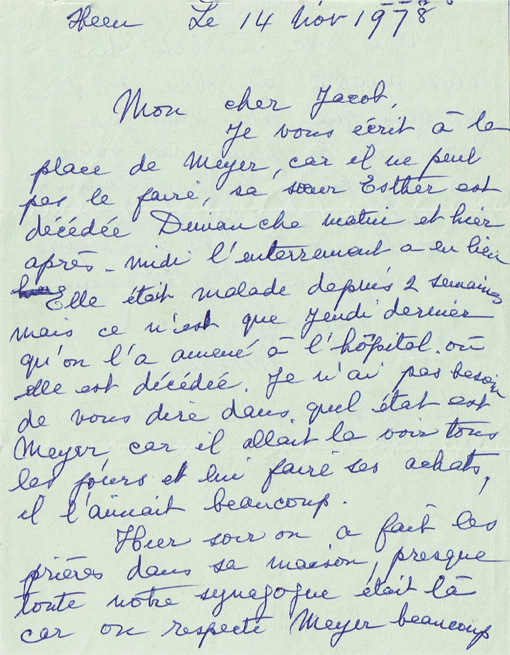 Le 14 Nov 1978
Mon cher Jacob,
Je vous écrit à la
place de Meyer, car il ne peut
pas le faire, sa sœur Esther est
décédée Dimanche matin et hier
après-midi l'enterrement a eu lieu
Elle était malade depuis 2 semaines
mais ce n'est que Jeudi dernier
qu'on l'a amené à l'hôpital où
elle est décédée. Je n'ai pas besoin
de vous dire dans quel état est
Meyer car il allait la voir tous
les jours et lui faire ses achats,
il l'aimait beaucoup.
Hier soir on a fait les
prières dans sa maison, presque
toute notre synagogue était là
car on respecte Meyer beaucoup